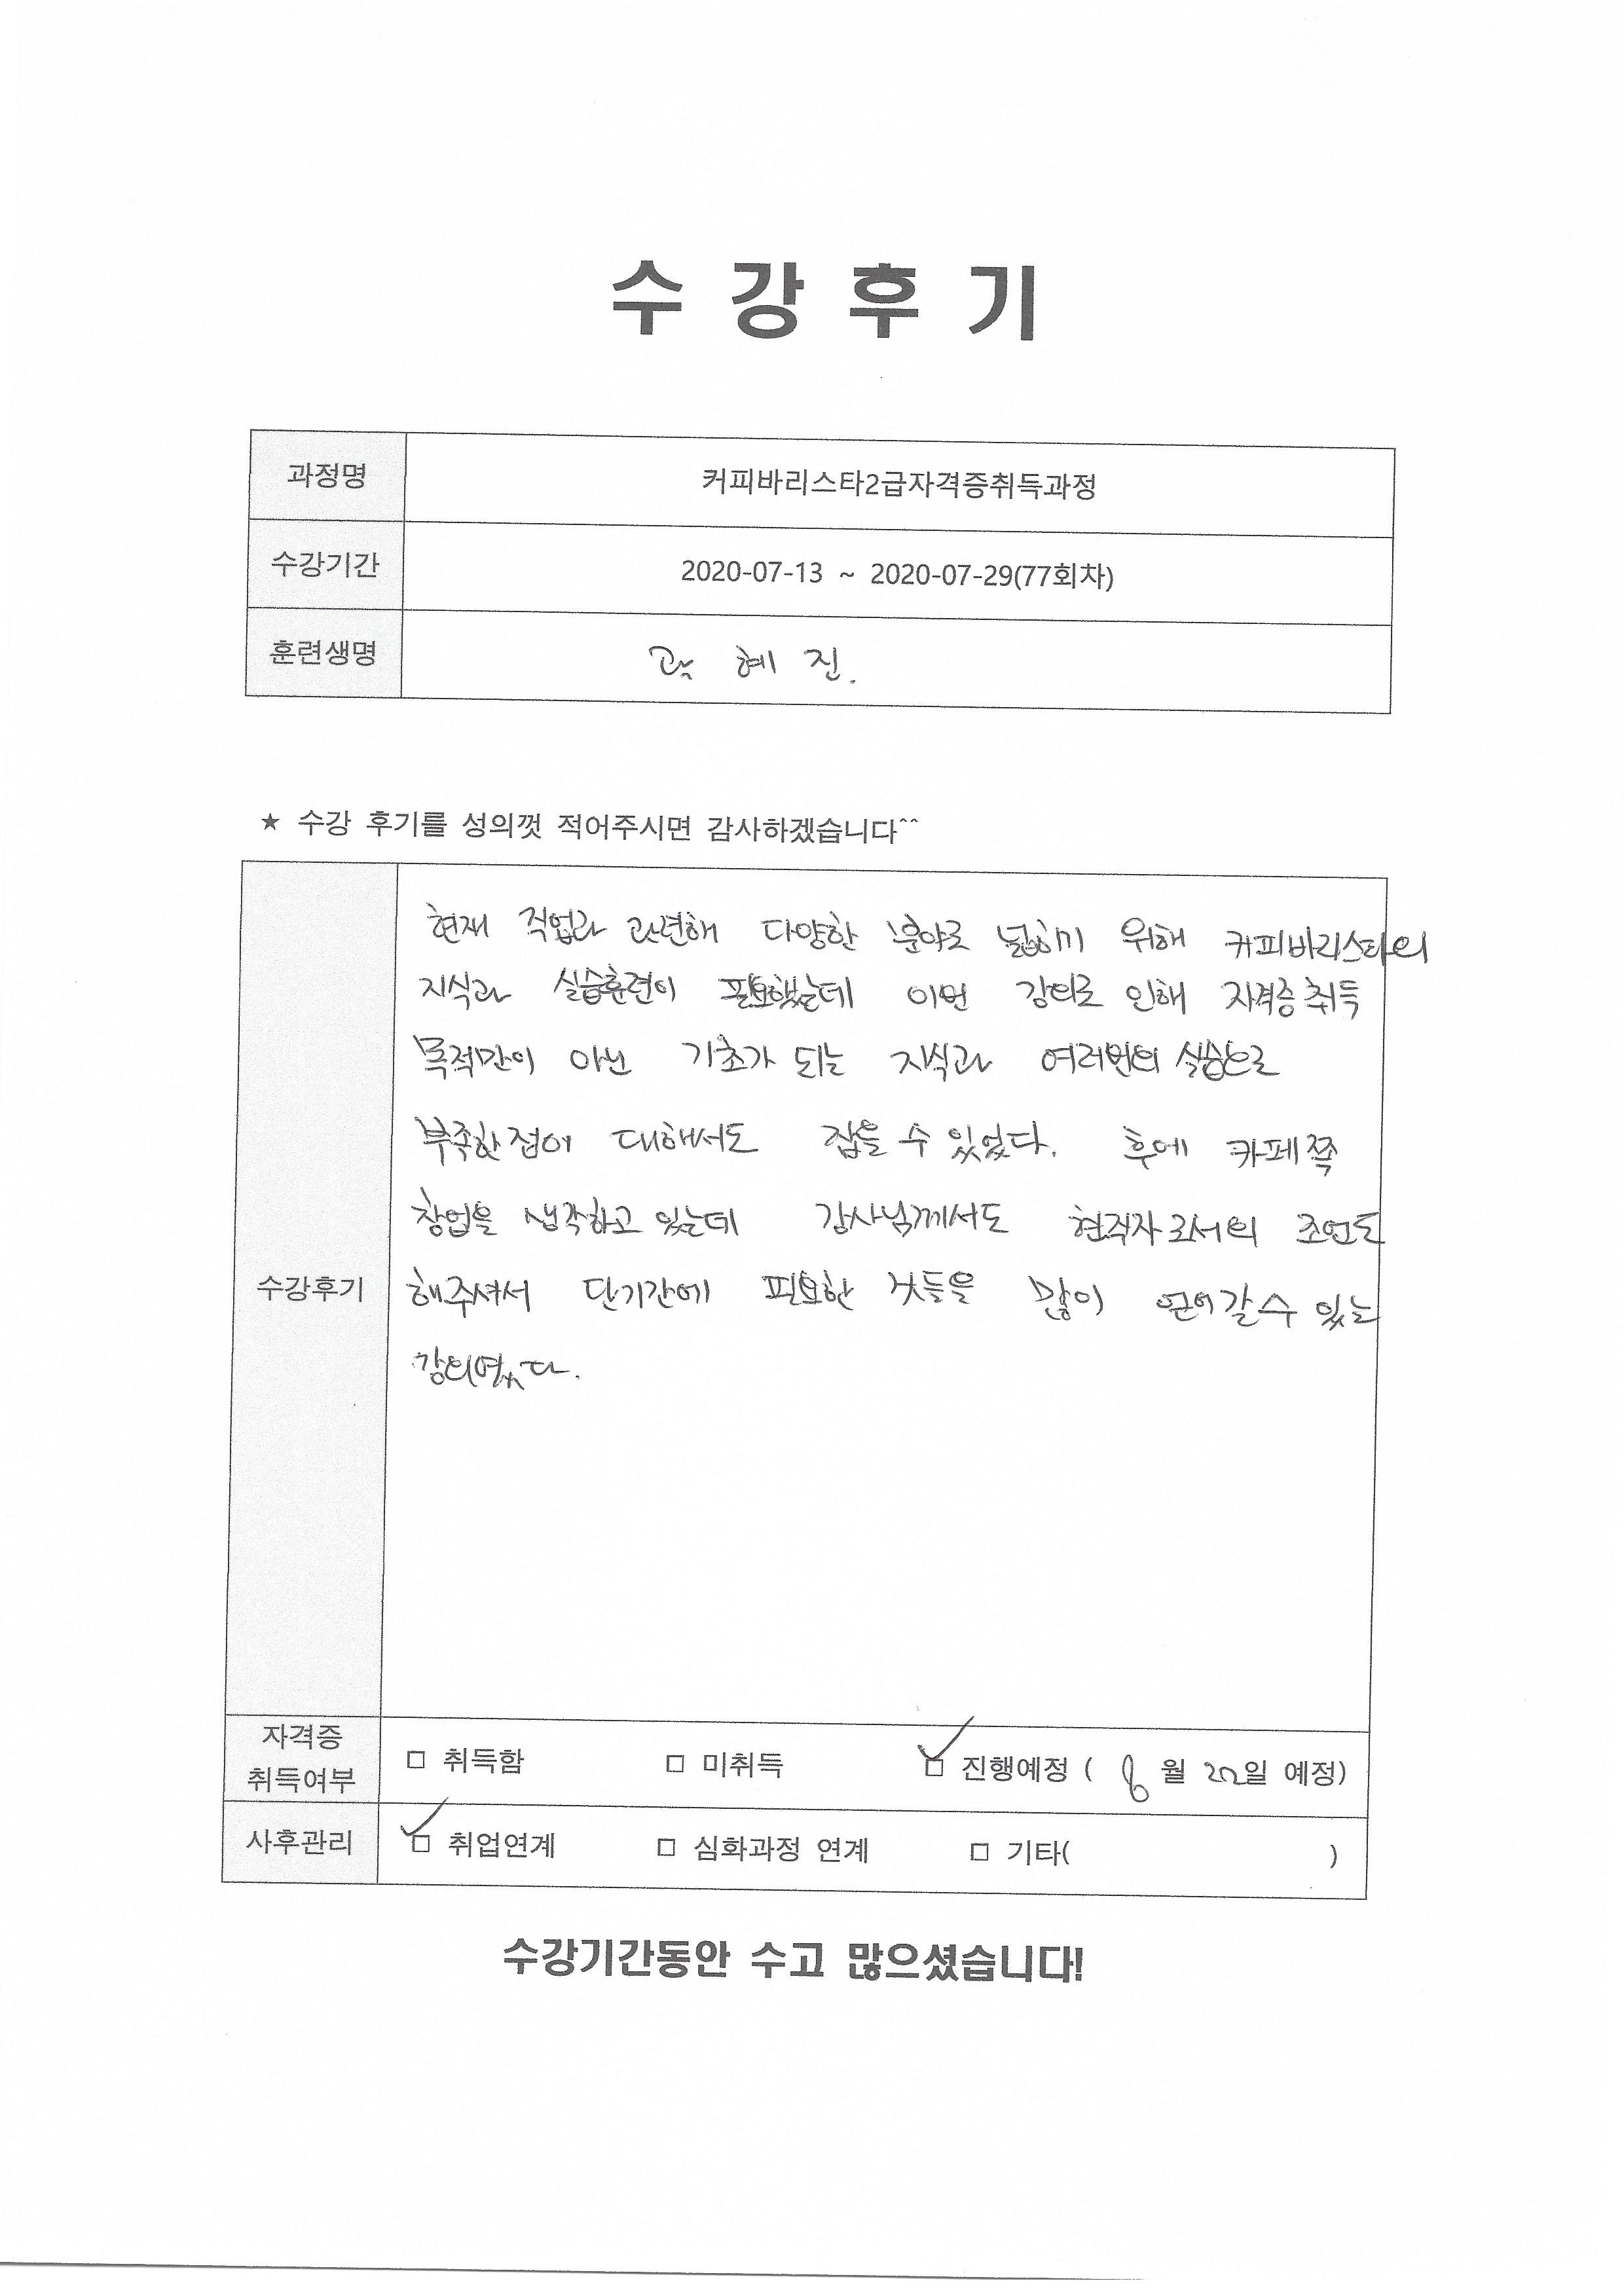 수 강 후 기
과정명 커피바리스타2급자격증취득과정
수강기간 2020-07-13 ~ 2020-07-29(77회차)
훈련생명 곽 혜 진.
★ 수강 후기를 성의껏 적어주시면 감사하겠습니다^^
수강후기
현재 직업과 관련해 다양한 분야로 넓히기 위해 커피바리스타의
지식과 실습훈련이 필요했는데 이번 강의로 인해 자격증 취득
목적만이 아닌 기초가 되는 지식과 여러번의 실습으로
부족한 점에 대해서도 잡을 수 있었다. 후에 카페쪽
창업을 생각하고 있는데 강사님께서도 현직자로서의 조언도
해주셔서 단기간에 필요한 것들을 많이 얻어갈 수 있는
강의였다.
자격증
취득여부 □ 취득함 □ 미취득 ☑ 진행예정 ( 8월 22일 예정)
사후관리 ☑ 취업연계 □ 심화과정 연계 □ 기타( )
수강기간동안 수고 많으셨습니다!